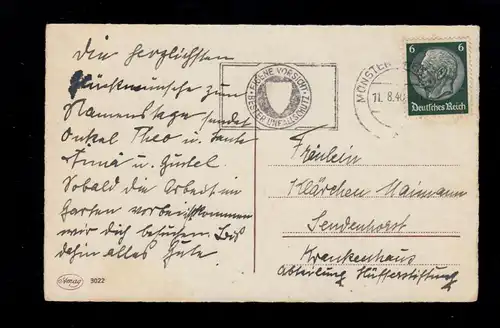 Die herzlichsten
Glückwünsche zum
Namenstage sendet
Onkel Theo u. Tante
Anna u. Gustel.
Sobald die Arbeit im
Garten vorbei ist kommen
wir dich besuchen. Bis
dahin alles Gute.
EIGENE VORSICHT
BESTER UNFALLSCHUTZ
MÜNSTER
11.8.40
6 6
Deutsches Reich
Fräulein
Klärchen Naimann
Sendenhorst
Krankenhaus
Abteilung
9022